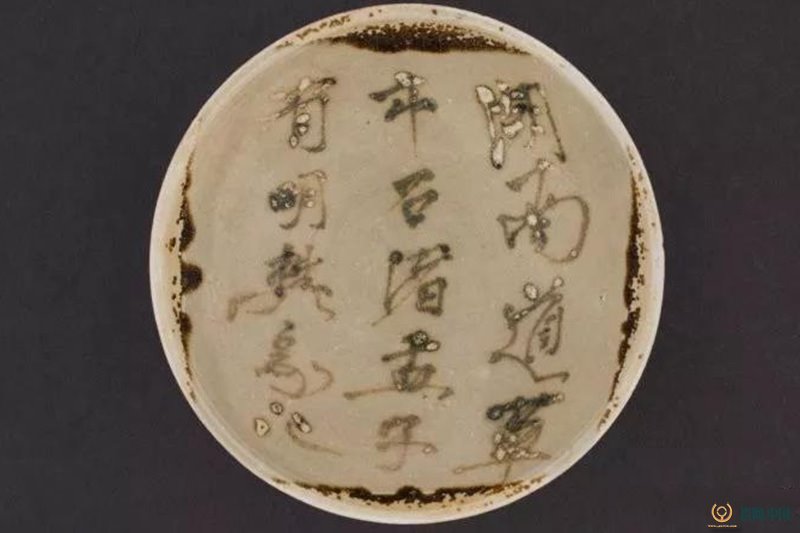 湖南道草
市石渚盂子
有明樊家記